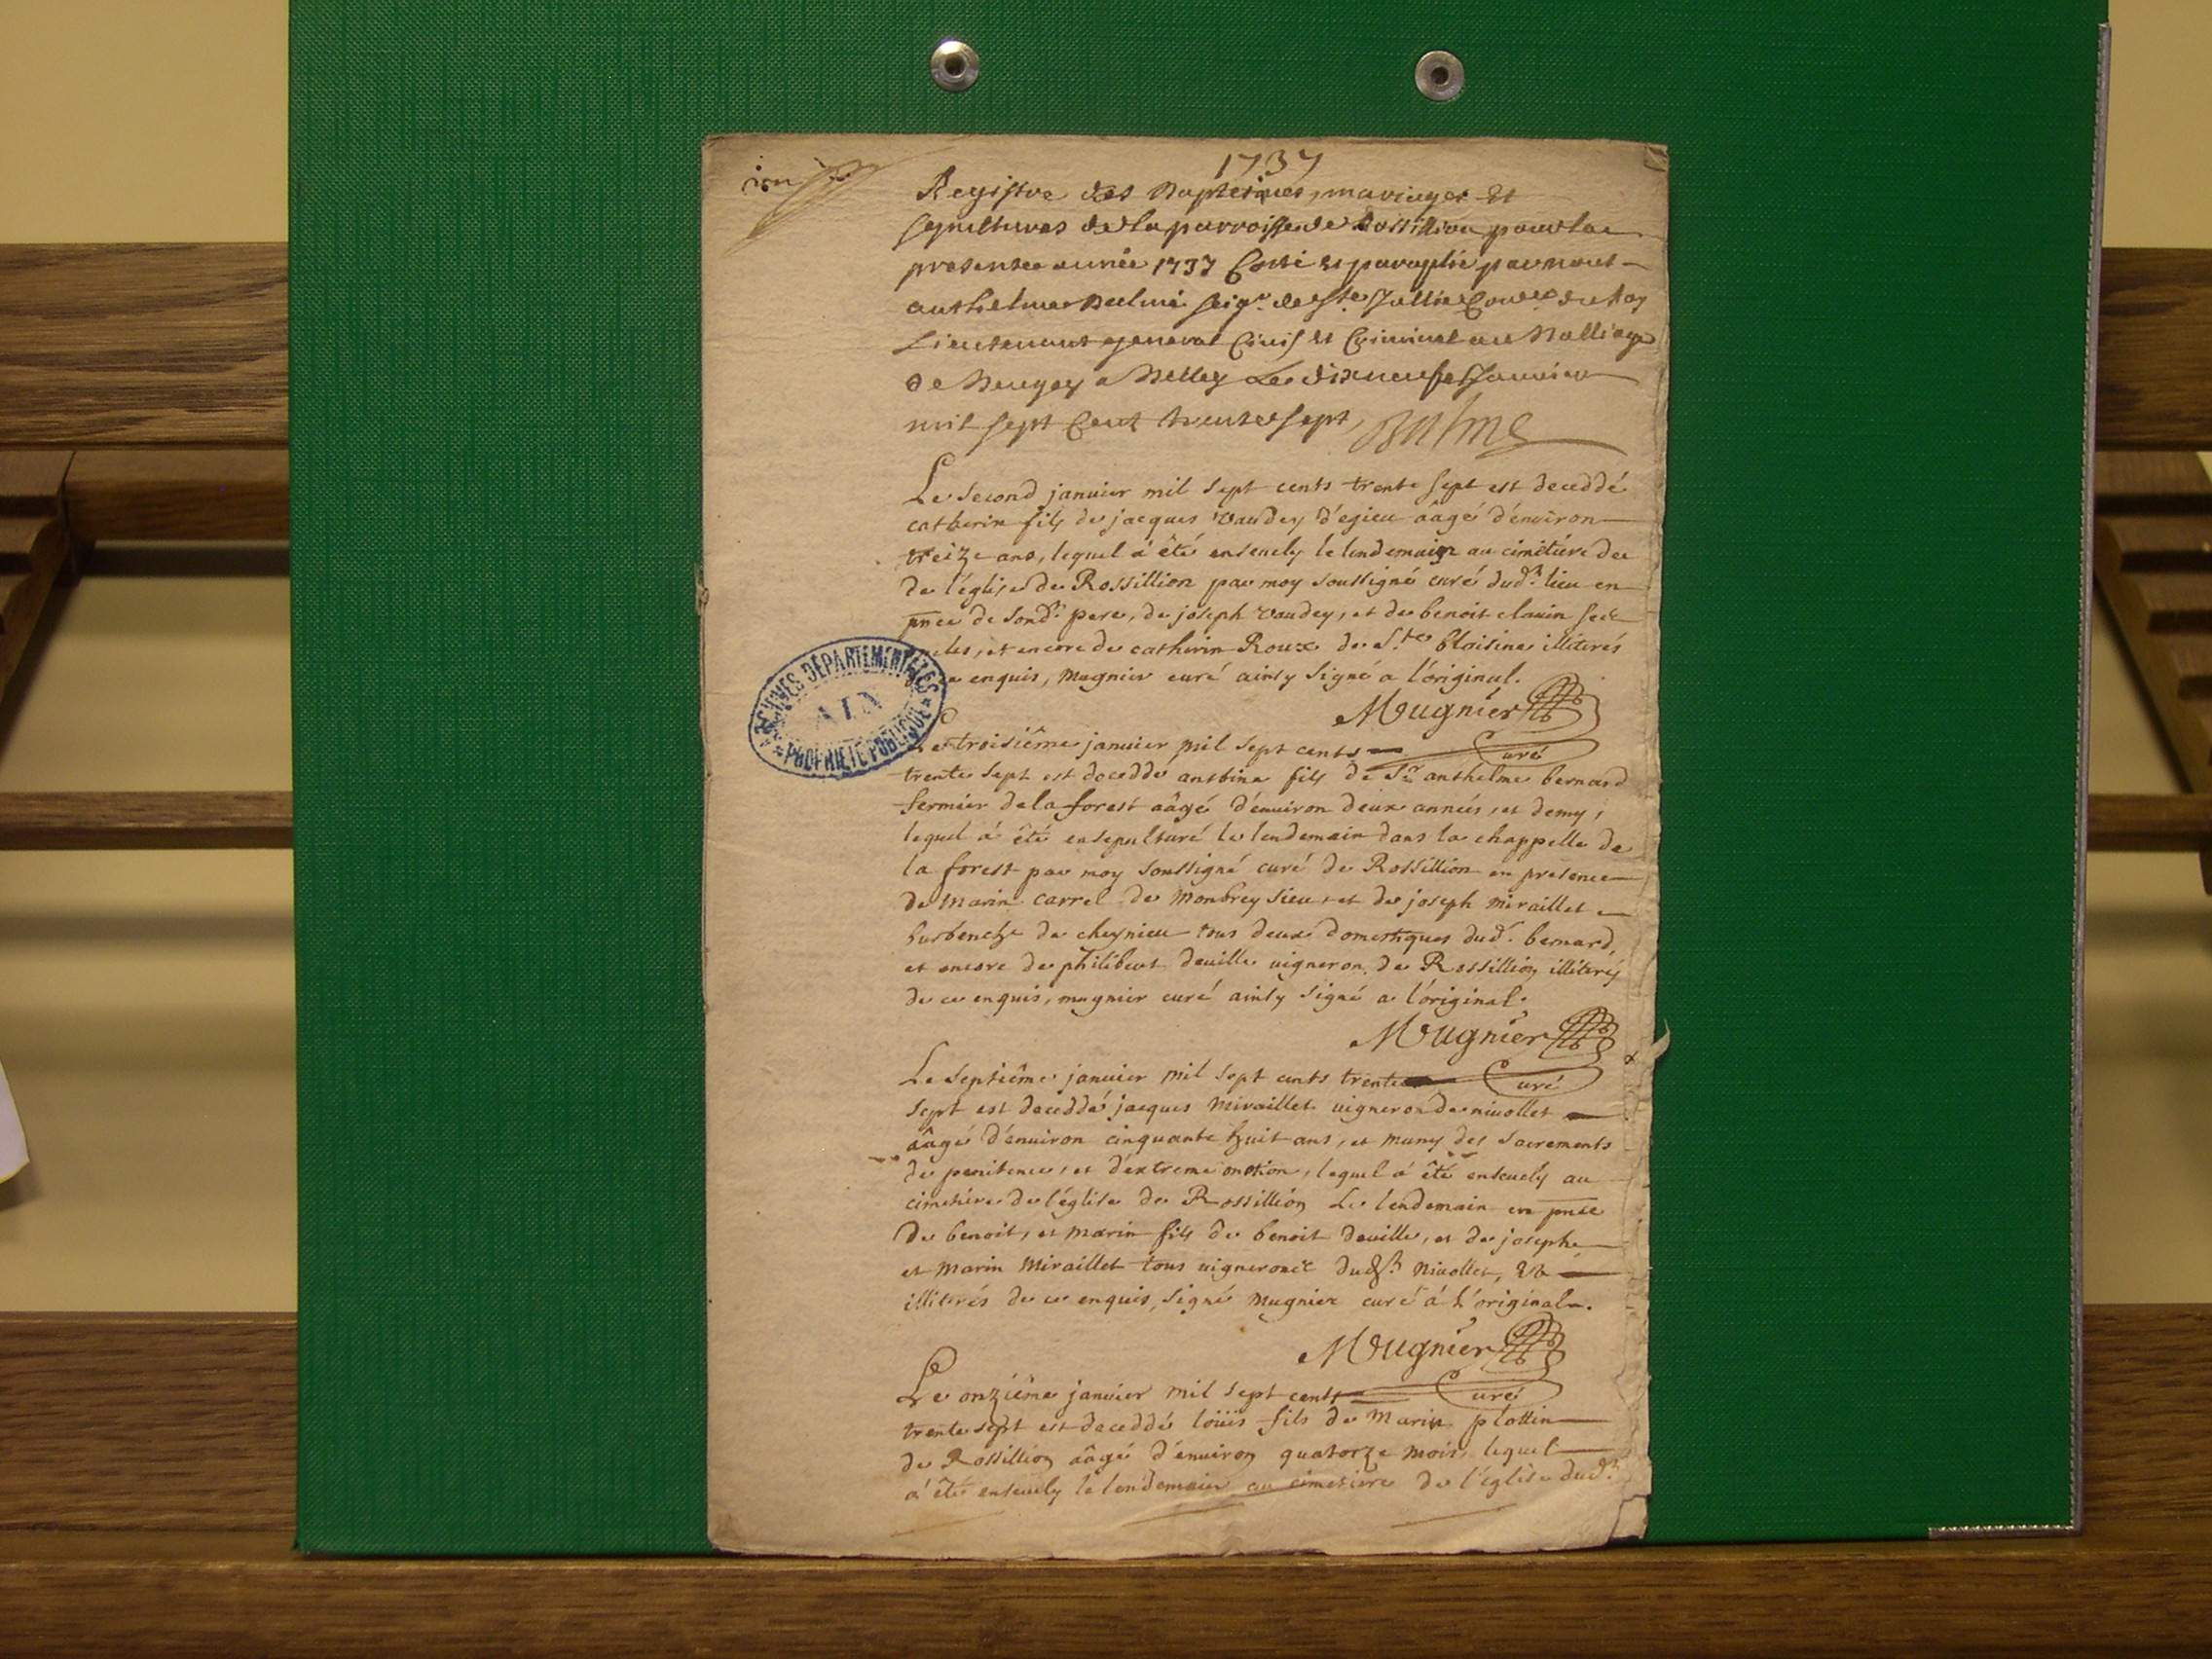 1737
Registre des Baptesmes, mariages Et
sepultures de la parroisse de Rossillion pour la
presente année 1737 Cotté et paraphé par nous
anthelme Balme seigr de Ste Jullie Coner du Roy
Lieutenant general Civil et Criminel au Balliage
de Beugey a Belley Le dixneufe Janvier
mil sept Cent trente sept Balme
Le second janvier mil sept cents trente sept est deceddé
catherin fils de jacques Vaudey d'egieu ââgé d'environ
treize ans, lequel á êté ensevely le lendemain au cimetiére de
de l'église de Rossillion par moy soussigné curé dudt. lieu en
pnce de sondt. pere, de joseph Vaudey, et de benoit clavin
et encore de catherin Roux de Ste blaisine illiterés
enquis, Mugnier curé ainsy signé a l'original.
Mugnier
Curé
ARCHIVES DÉPARTEMENTALES
AIN
PROPRIÉTÉ PUBLIQUE
Le troisiême janvier mil sept cents
trente sept est deceddé anthme fils de Sr anthelme bernard
fermier de la forest ââgé d'environ deux années, et demy,
lequel á êté ensepulturé le lendemain dans la chappelle de
la forest par moy soussigné curé de Rossillion en presence
de Marin carrel de Monbreysieu, et de joseph Miraillet
de cheynieu tous deux domestiques dudt. bernard,
et encore de philibert deville vigneron de Rossillion illiterés
de ce enquis, mugnier curé ainsy signé a l'original.
Mugnier
Curé
Le septiême janvier mil sept cents trente
sept est deceddé jacques Miraillet vigneron de nivollet
ââgé d'environ cinquante huit ans, et muny des sacrements
de penitence, et d'extreme onction, lequel á êté ensevely au
cimetiére de l'église de Rossillion Le lendemain en pnce
de benoit, et marin fils de benoit deville, et de joseph
et Marin Miraillet tous vignerons dudt. nivollet, Et
illiterés de ce enquis, signé Mugnier curé á L'original.
Mugnier
Curé
Le onziême janvier mil sept cents
trente sept est deceddé loüis fils de Marin plottin
de Rossillion ââgé d'environ quatorze mois, lequel
á êté ensevely le lendemain au cimetiere de l'église dudt.